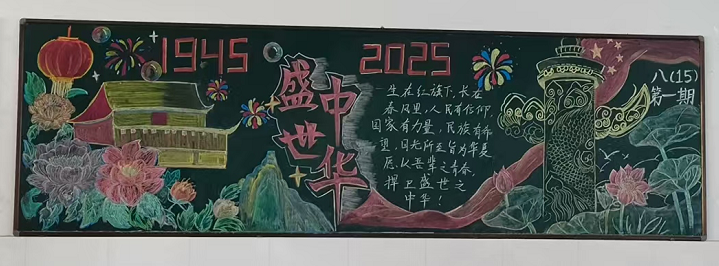 1945
2025
盛世
中华
一生在红旗下,长在
春风里,人民有信仰,
国家有力量,民族有希
望,目光所至皆为华夏
辰,以吾辈之青春
捍卫盛世之
中华!
八(15)
第一期